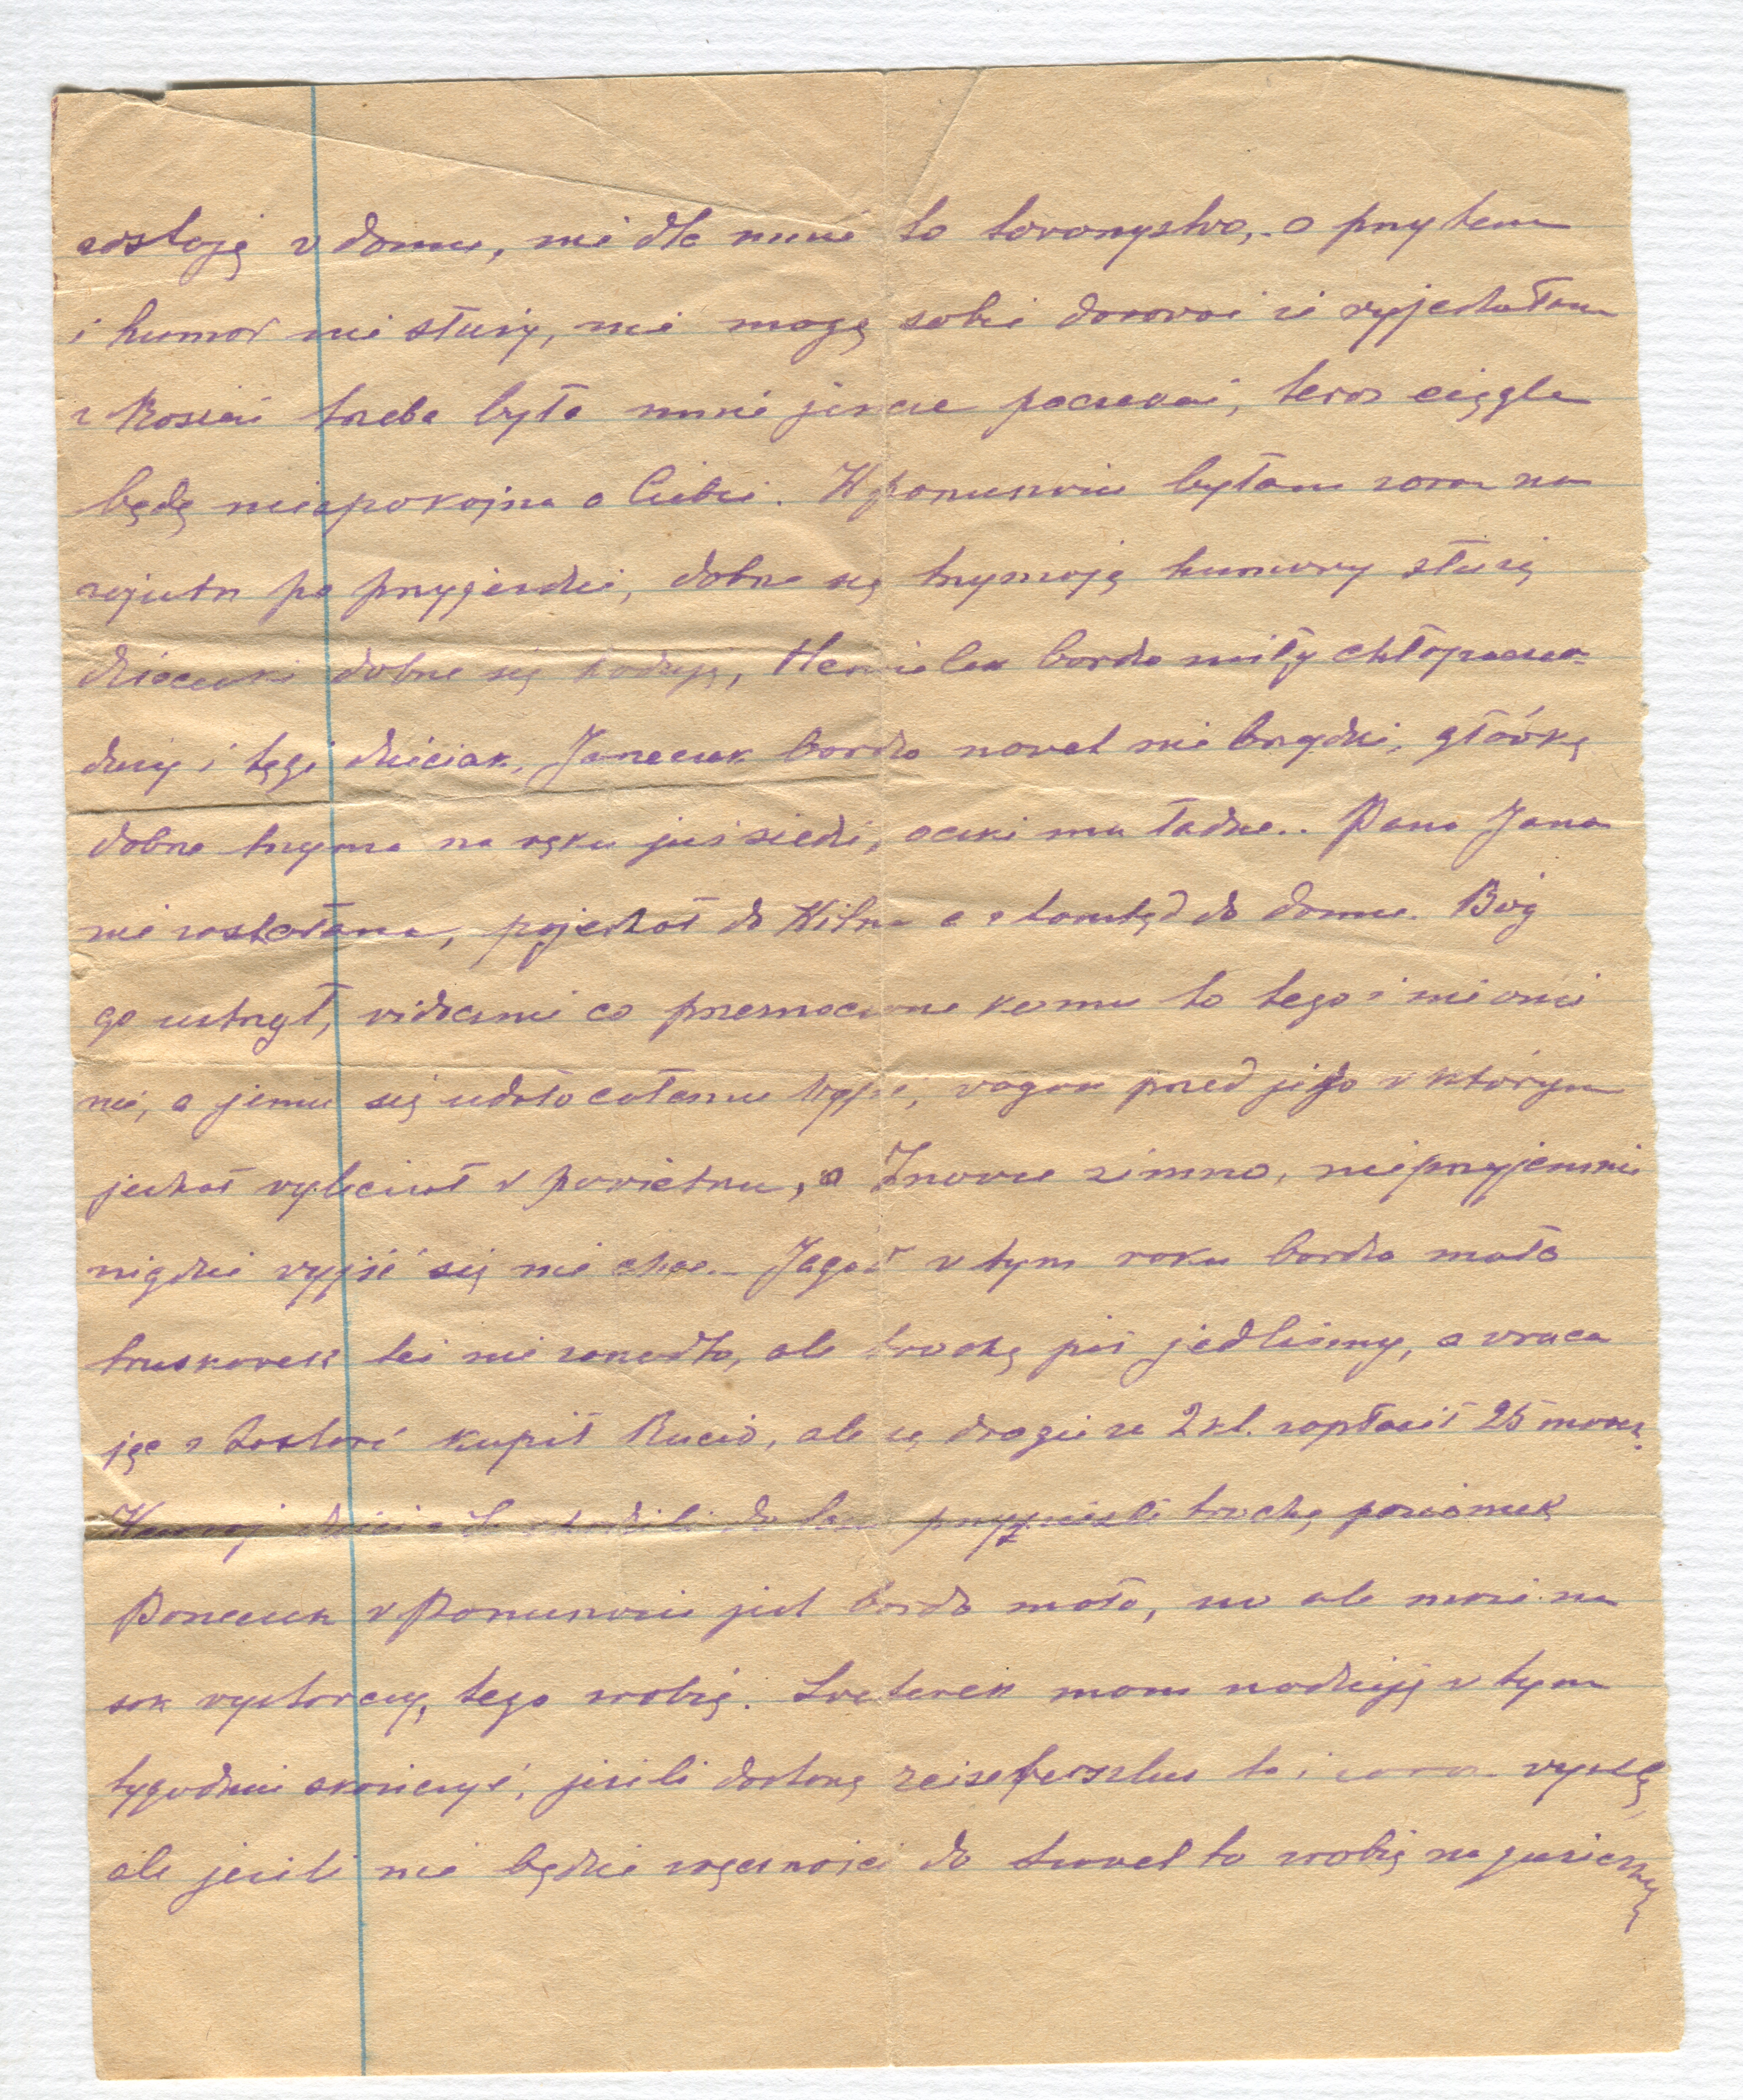 zostaję w domu, nie dla mnie to towarzystwo, a przytem
i humor nie służy, nie mogę sobie darować że wyjechałam
z Rosień trzeba było mnie jeszcze poczekać, teraz ciągle
będę niespokojna o Ciebie. W Poniemuniu byłam zaraz na
zajutrz po przyjeździe, dobrze się trzymają humory służą
dzieciuki dobrze się hodują, Heniulek bardzo miły chłopaczek
duży i tęgi dzieciak, Janeczek bardzo nawet nie brzydki, główkę
dobrze trzyma na ręku już siedzi, oczki ma ładne.. Pana Jana
nie zastałam, pojechał do Wilna a stamtąd do domu. Bóg
go ustrzegł, widzenie co przeznaczone komu to tego i nie omi
nie, a jemu się udało całemu wyjść, wagon przed jego w którym
jechał wyleciał w powietrze, a Znowu zimno, nieprzyjemnie
nigdzie wyjść się nie chce. Jagód w tym roku bardzo mało
truskawek też nie zanadto, ale trochę już jedliśmy, a wraca
jąc z kościoł kupił Rucio, ale są drogie za 2 kl. zapłacił 25 marek.
dzieci chodzili do lasu przynieśli trochę poziomek
Porzeczek w Poniemuniu jest bardzo mało, no ale może na
sok wystarczy, tego zrobię. Sweterek mam nadzieję w tym
tygodniu skończyć, jeżeli dostanę reiseferschlus to i zaraz wyszlę,
ale jeżeli nie będzie zręczności do Suwałk to zrobię na guziczkę